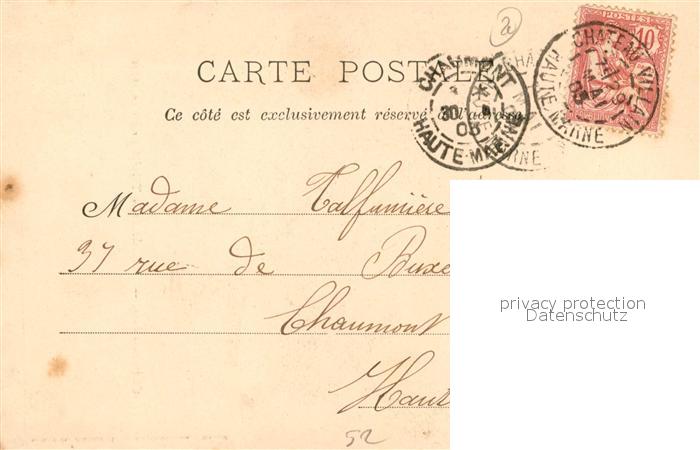 CARTE POSTALE
Ce côté est exclusivement réservé à l'adresse
POSTES
10
CHATEAUVILLAIN
HAUTE-MARNE
MAI
03
CHAUMONT
30
03
HAUTE-MARNE
Madame Talfumière
37 rue de Buxe
Chaumont
Haut
52
privacy protection
Datenschutz